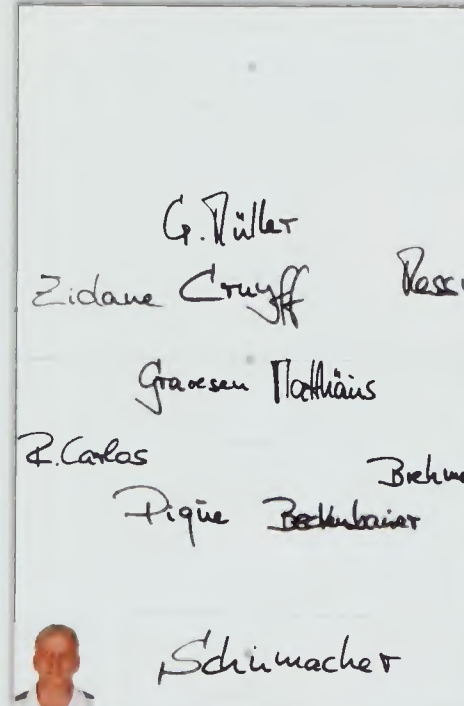 G. Müller
Zidane Cruyff Messi
Gravesen Matthäus
R. Carlos
Brehme
Piqúe Beckenbauer
Schumacher